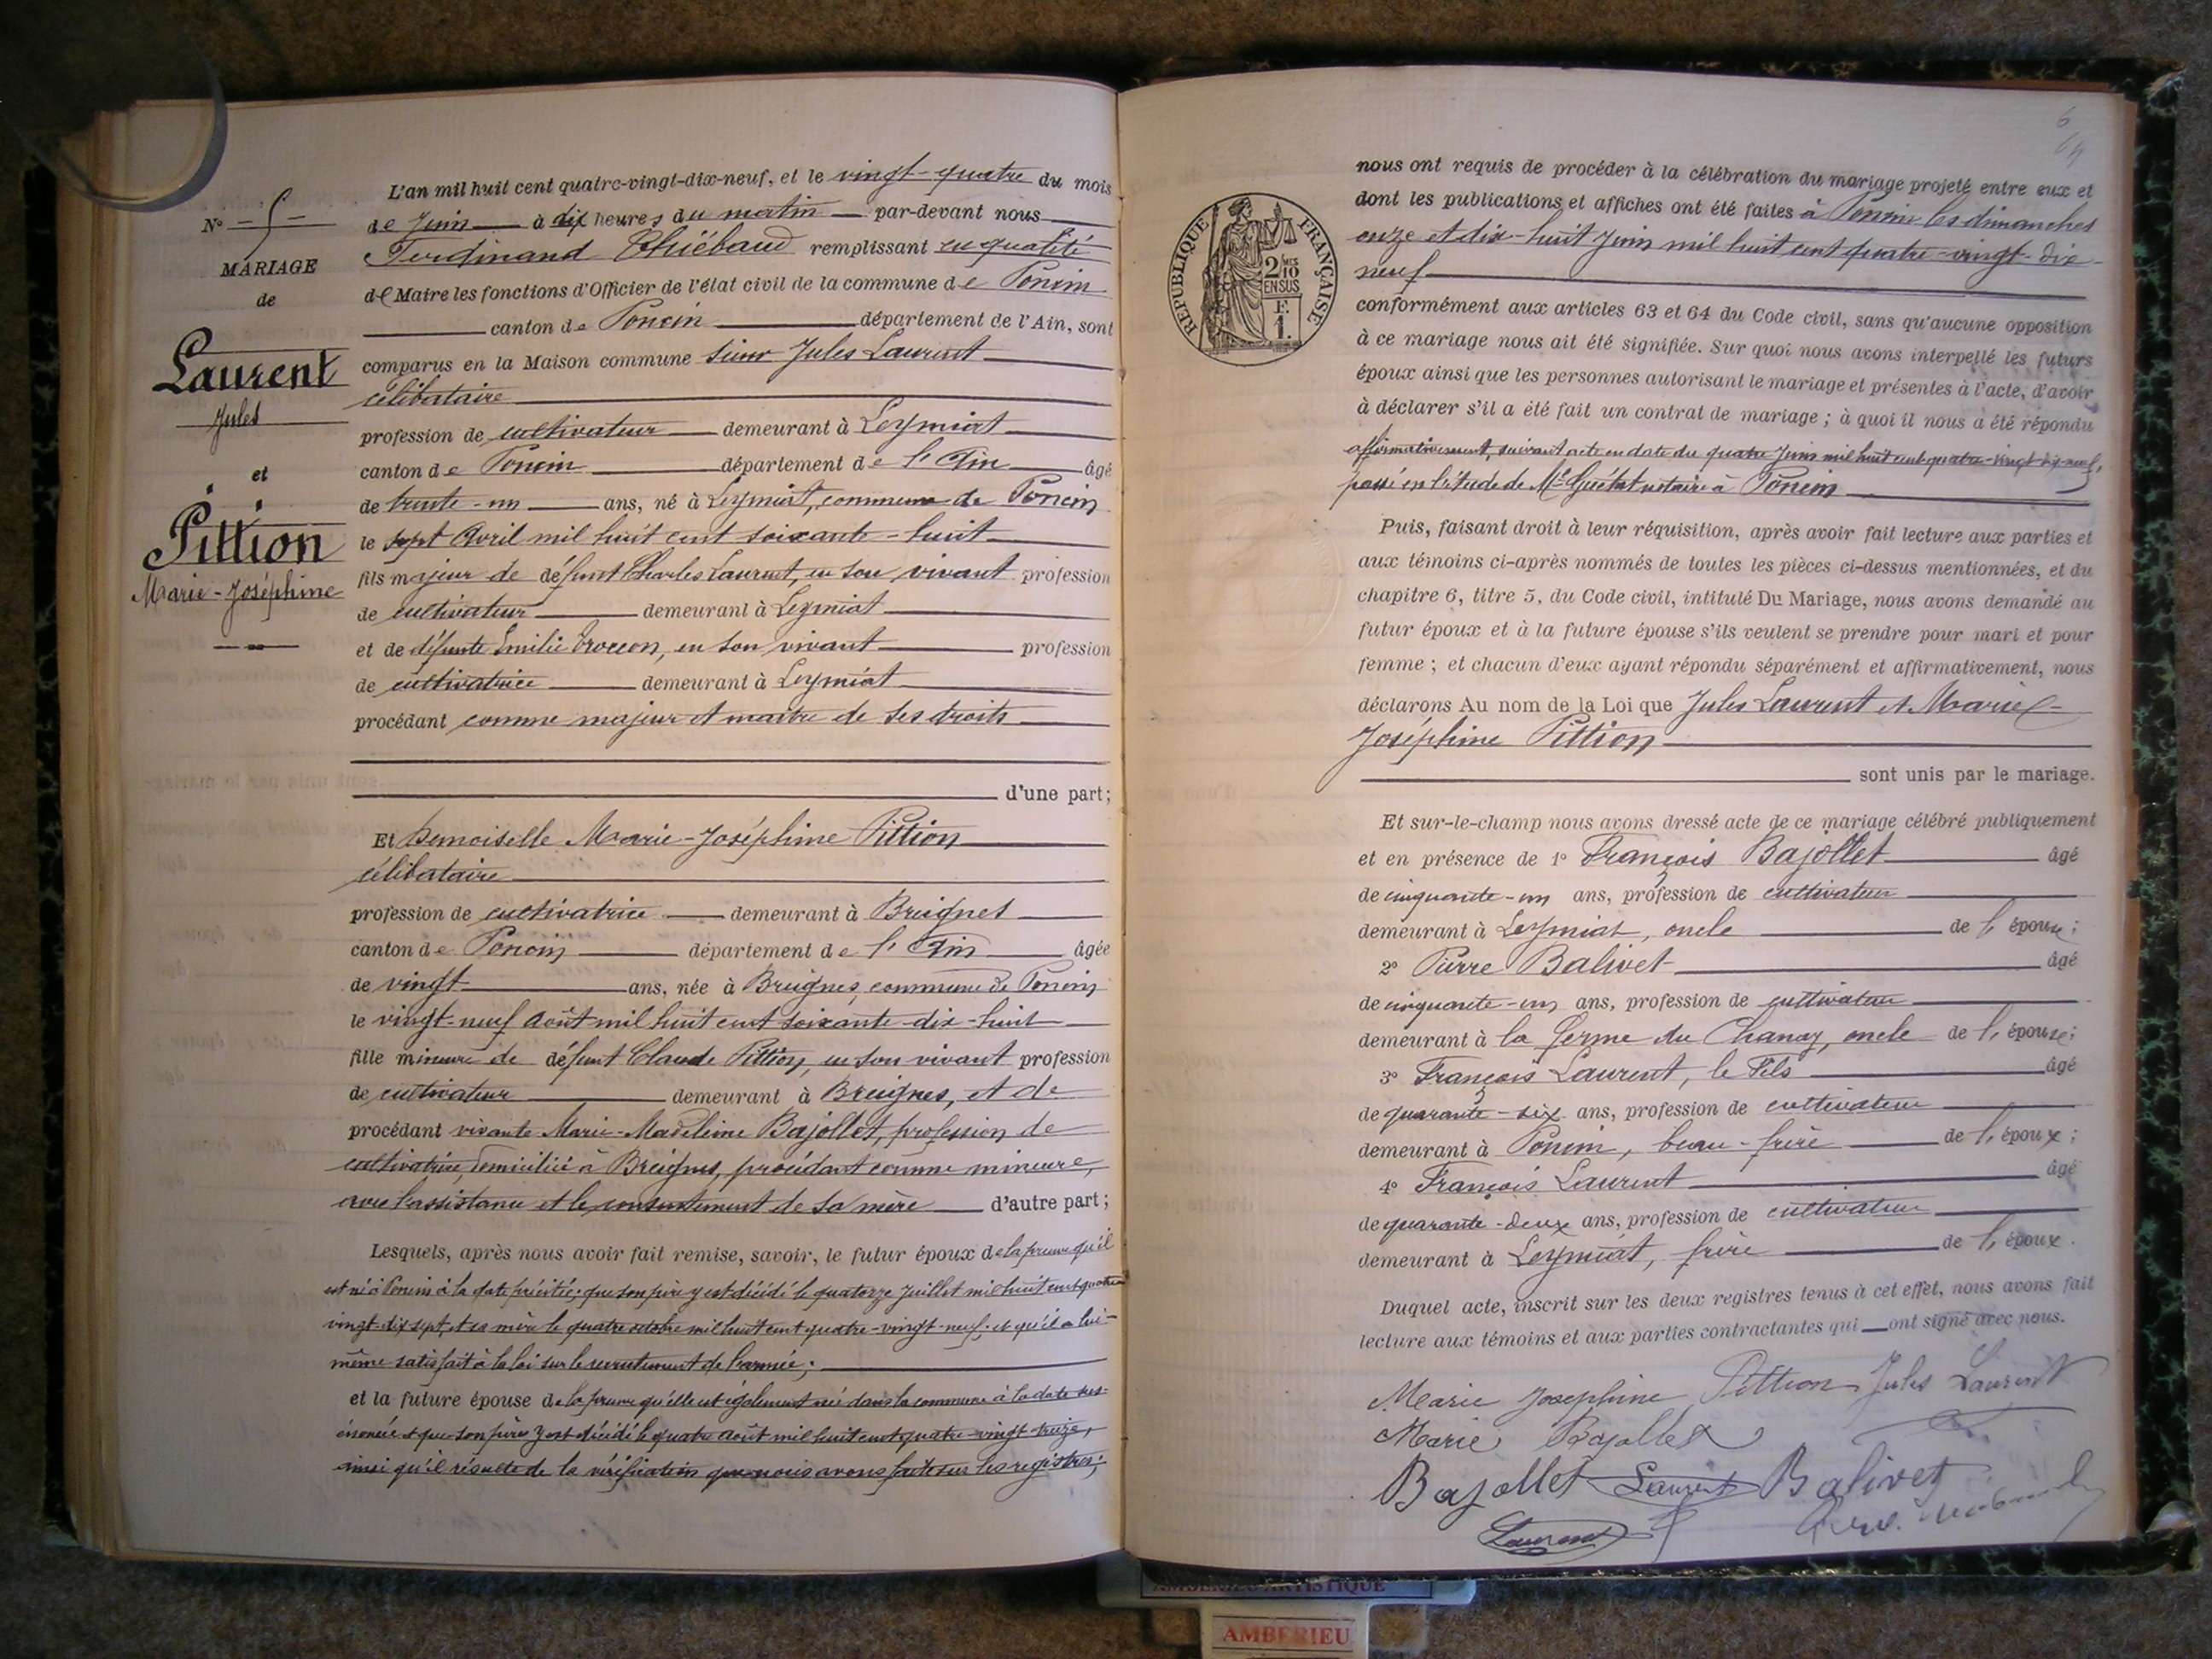 N° 5
MARIAGE
de
Laurent
Jules
et
Pittion
Marie-Joséphine
L'an mil huit cent quatre-vingt-dix-neuf, et le vingt-quatre du mois
de Juin à dix heures du matin par-devant nous
Ferdinand Thiébaud remplissant en qualité
de Maire les fonctions d'Officier de l'état civil de la commune de Poncin
canton de Poncin département de l'Ain, sont
comparus en la Maison commune sieur Jules Laurent
célibataire
profession de cultivateur demeurant à Leymiat
canton de Poncin département de l'Ain âgé
de trente-un ans, né à Leymiat, commune de Poncin
le sept Avril mil huit cent soixante-huit
fils majeur de défunt Charles Laurent, en son vivant profession
de cultivateur demeurant à Leymiat
et de défunte Emilie Troccon, en son vivant profession
de cultivatrice demeurant à Leymiat
procédant comme majeur et maître de ses droits
d'une part;
Et Demoiselle Marie-Joséphine Pittion
célibataire
profession de cultivatrice demeurant à Breignes
canton de Poncin département de l'Ain âgée
de vingt ans, née à Breignes, commune de Poncin
le vingt-neuf Août mil huit cent soixante-dix-huit
fille mineure de défunt Claude Pittion, en son vivant profession
de cultivateur demeurant à Breignes, et de
procédant vivante Marie-Madeleine Bajollet, profession de
cultivatrice, domiciliée à Breignes, procédant comme mineure,
avec l'assistance et le consentement de sa mère d'autre part;
Lesquels, après nous avoir fait remise, savoir, le futur époux de la preuve qu'il
est né à Poncin à la date précitée; que son père y est décédé le quatorze Juillet mil huit cent quatre
vingt-dix sept, et sa mère le quatre octobre mil huit cent quatre-vingt-neuf; et qu'il a lui-
même satisfait à la loi sur le recrutement de l'armée;
et la future épouse de la preuve qu'elle est également née dans la commune à la date sus-
énoncée et que son père y est décédé le quatre août mil huit cent quatre-vingt-treize,
ainsi qu'il résulte de la vérification que nous avons faite sur les registres;
RÉPUBLIQUE FRANÇAISE
2/10 MES
EN SUS
F.
1.
nous ont requis de procéder à la célébration du mariage projeté entre eux et
dont les publications et affiches ont été faites à Poncin les dimanches
onze et dix-huit Juin mil huit cent quatre-vingt-dix-
neuf
conformément aux articles 63 et 64 du Code civil, sans qu'aucune opposition
à ce mariage nous ait été signifiée. Sur quoi nous avons interpellé les futurs
époux ainsi que les personnes autorisant le mariage et présentes à l'acte, d'avoir
à déclarer s'il a été fait un contrat de mariage; à quoi il nous a été répondu
affirmativement, suivant acte en date du quatre Juin mil huit cent quatre-vingt-dix-neuf,
passé en l'étude de Me Guétat notaire à Poncin
Puis, faisant droit à leur réquisition, après avoir fait lecture aux parties et
aux témoins ci-après nommés de toutes les pièces ci-dessus mentionnées, et du
chapitre 6, titre 5, du Code civil, intitulé Du Mariage, nous avons demandé au
futur époux et à la future épouse s'ils veulent se prendre pour mari et pour
femme; et chacun d'eux ayant répondu séparément et affirmativement, nous
déclarons Au nom de la Loi que Jules Laurent et Marie-
Joséphine Pittion
sont unis par le mariage.
Et sur-le-champ nous avons dressé acte de ce mariage célébré publiquement
et en présence de 1° François Bajollet âgé
de cinquante-un ans, profession de cultivateur
demeurant à Leymiat, oncle de l'épouse;
2° Pierre Balivet âgé
de cinquante-un ans, profession de cultivateur
demeurant à la ferme du Chanoz, oncle de l'épouse;
3° François Laurent, le Fils âgé
de quarante-six ans, profession de cultivateur
demeurant à Poncin, beau-frère de l'époux;
4° François Laurent âgé
de quarante-deux ans, profession de cultivateur
demeurant à Leymiat, frère de l'époux.
Duquel acte, inscrit sur les deux registres tenus à cet effet, nous avons fait
lecture aux témoins et aux parties contractantes qui ont signé avec nous.
Marie Josephine Pittion Jules Laurent
Marie Bajollet
Bajollet Laurent Balivet
Laurent
AMBERIEU ARTISTIQUE
AMBERIEU